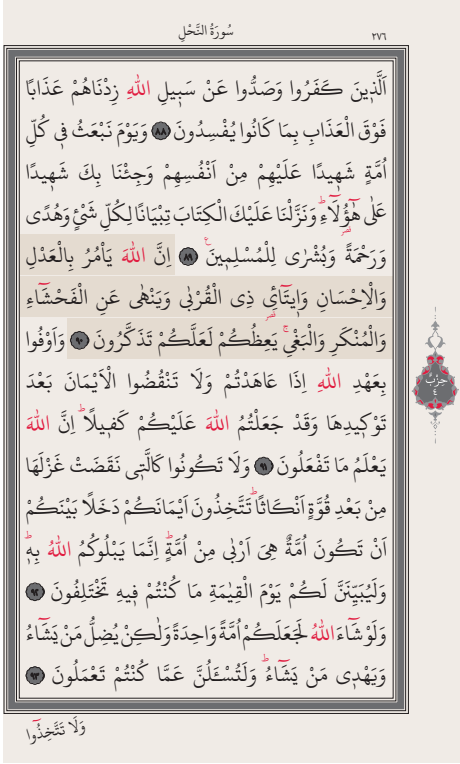 سُورَةُ النَّحْلِ ٢٧٦
اَلَّذ۪ينَ كَفَرُوا وَصَدُّوا عَنْ سَب۪يلِ اللّٰهِ زِدْنَاهُمْ عَذَابًا
فَوْقَ الْعَذَابِ بِمَا كَانُوا يُفْسِدُونَ ٨٨ وَيَوْمَ نَبْعَثُ ف۪ي كُلِّ
اُمَّةٍ شَه۪يدًا عَلَيْهِمْ مِنْ اَنْفُسِهِمْ وَجِئْنَا بِكَ شَه۪يدًا
عَلٰى هٰٓؤُ۬لَٓاءِۜ وَنَزَّلْنَا عَلَيْكَ الْكِتَابَ تِبْيَانًا لِكُلِّ شَيْءٍ وَهُدًى
وَرَحْمَةً وَبُشْرٰى لِلْمُسْلِم۪ينَ۟ ٨٩ اِنَّ اللّٰهَ يَأْمُرُ بِالْعَدْلِ
وَالْاِحْسَانِ وَا۪يتَٓائِ ذِي الْقُرْبٰى وَيَنْهٰى عَنِ الْفَحْشَٓاءِ
وَالْمُنْكَرِ وَالْبَغْيِۚ يَعِظُكُمْ لَعَلَّكُمْ تَذَكَّرُونَ ٩٠ وَاَوْفُوا
بِعَهْدِ اللّٰهِ اِذَا عَاهَدْتُمْ وَلَا تَنْقُضُوا الْاَيْمَانَ بَعْدَ
تَوْك۪يدِهَا وَقَدْ جَعَلْتُمُ اللّٰهَ عَلَيْكُمْ كَف۪يلًاۜ اِنَّ اللّٰهَ
يَعْلَمُ مَا تَفْعَلُونَ ٩١ وَلَا تَكُونُوا كَالَّت۪ي نَقَضَتْ غَزْلَهَا
مِنْ بَعْدِ قُوَّةٍ اَنْكَاثًاۜ تَتَّخِذُونَ اَيْمَانَكُمْ دَخَلًا بَيْنَكُمْ
اَنْ تَكُونَ اُمَّةٌ هِيَ اَرْبٰى مِنْ اُمَّةٍۜ اِنَّمَا يَبْلُوكُمُ اللّٰهُ بِه۪ۜ
وَلَيُبَيِّنَنَّ لَكُمْ يَوْمَ الْقِيٰمَةِ مَا كُنْتُمْ ف۪يهِ تَخْتَلِفُونَ ٩٢
وَلَوْ شَٓاءَ اللّٰهُ لَجَعَلَكُمْ اُمَّةً وَاحِدَةً وَلٰكِنْ يُضِلُّ مَنْ يَشَٓاءُ
وَيَهْد۪ي مَنْ يَشَٓاءُۜ وَلَتُسْـَٔلُنَّ عَمَّا كُنْتُمْ تَعْمَلُونَ ٩٣
وَلَا تَتَّخِذُٓوا
حِزْبٌ
٤